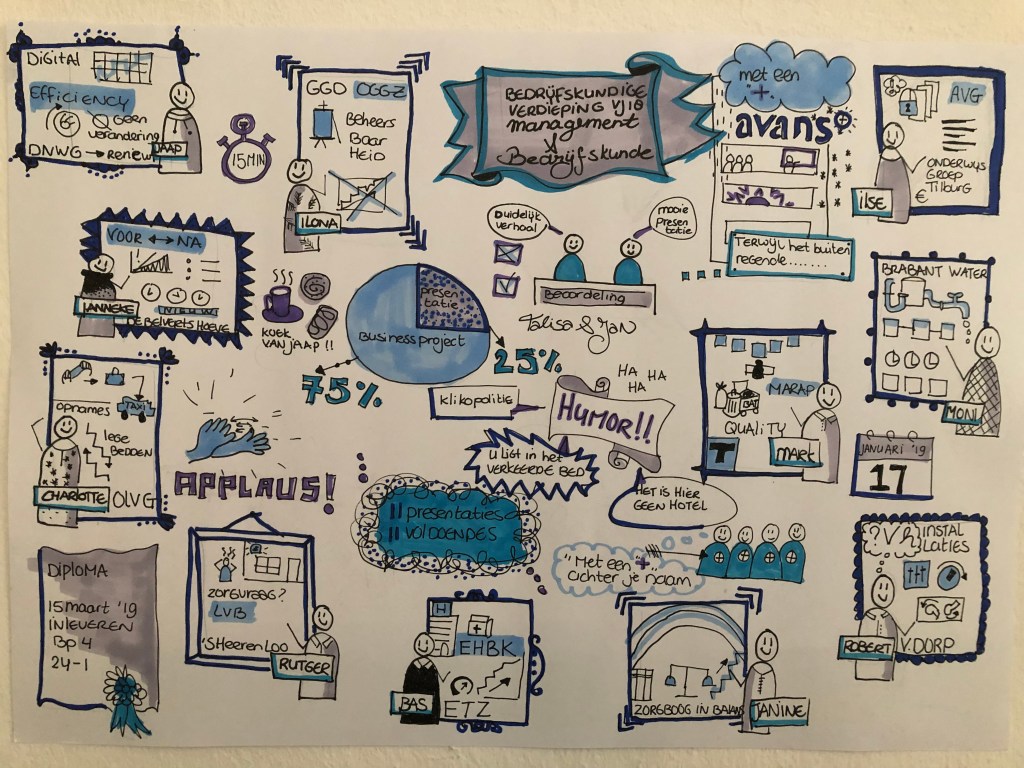 DiGital
EFFiCiENCY
& Geen
verandering
DNWG → Renewi
JAAP
15 MIN
GGD OGGZ
Beheers
Baar
Heid
ILONA
BEDRIJFSKUNDIGE
VERDIEPING VJ10
management
& Bedrijfskunde
met een
"+"
avans
TERWIJL het buiten
regende......
AVG
ONDERWIJS
GROEP
Tilburg
€
ilSE
VOOR ↔ NA
NIEUW
JANNEKE
DE BELVERTS HOEVE
KOEK
VAN JAAP!!
presen
tatie
Business project
75%
25%
Duidelijk
verhaal
mooie
Presen
tatie
Beoordeling
Talisa & Jan
BRABANT WATER
MONI
opnames
TAXI
lege
Bedden
CHARLOTTE OLVG
APPLAUS!
klikopolitie
HA HA
HA
HUMOR!!
U LIGT IN het
VERKEERDE BED
HET IS HIER
GEEN HOTEL
MARAP
BAT
QUALITY
T
MARK
JANUARI '19
17
11 presentaties
11 VOLDOENDES
"Met een +"
achter je naam
DiPLOMA
15 maart '19
INLEVEREN
Bp 4
24-1
zorgvraag?
LVB
'SHeerenLoo
RUTGER
H
EHBK
BAS
ETZ
ZORGBOOG IN BALANS
JANINE
?
INSTAL
LATIES
ROBERT
V. DORP